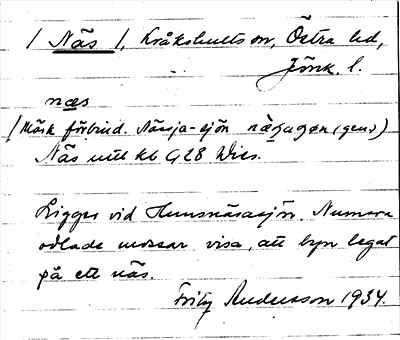 / Näs /, Kråkshults sn, Östra hd,
Jönk. l.
næs
(Märk förbind. Nässja-sjön (gen.)
Näs utt kb G28 Wies.
Ligger vid Hunsnäsasjön. Numera
odlade mossar visa, att byn legat
på ett näs.
Fritz Andersson 1934.